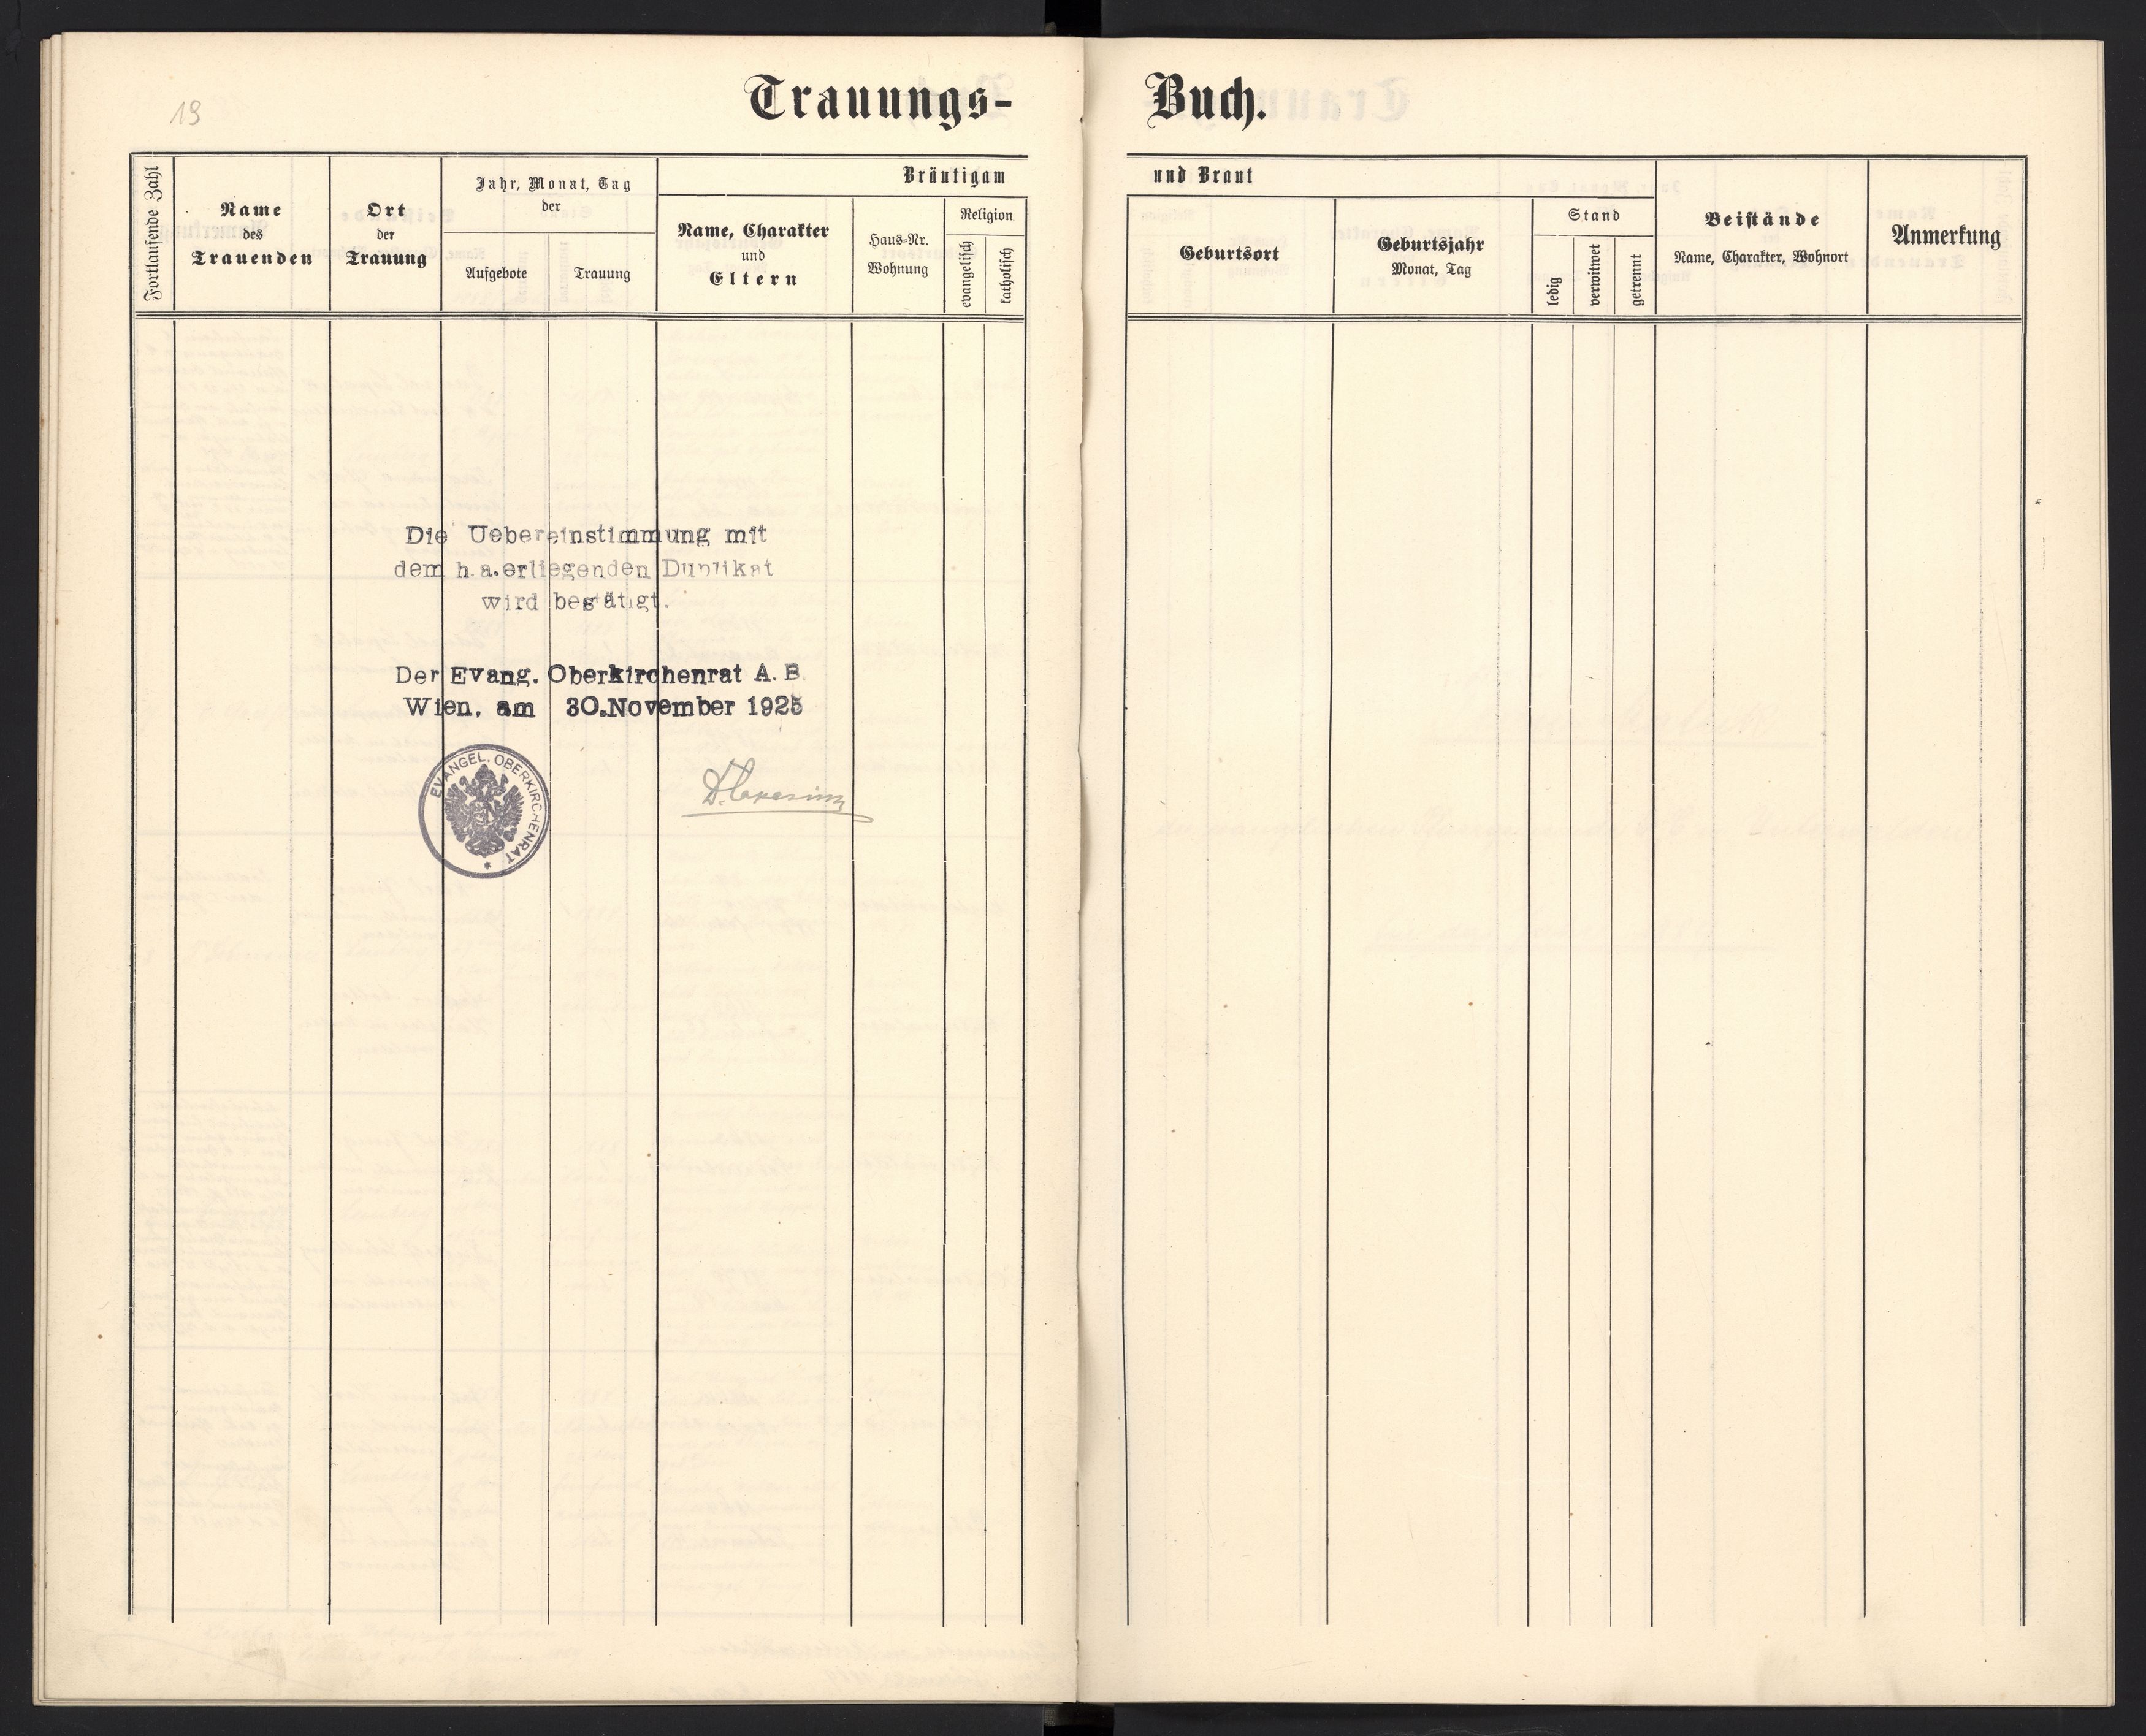 19
Trauungs-Buch.
Fortlaufende Zahl
Name
des
Trauenden
Ort
der
Trauung
Jahr, Monat, Tag
der
Aufgebote
Trauung
Bräutigam und Braut
Name, Charakter
und
Eltern
Haus-Nr.
Wohnung
Religion
evangelisch
katholisch
Geburtsort
Geburtsjahr
Monat, Tag
Stand
ledig
verwitwet
getrennt
Beistände
Name, Charakter, Wohnort
Anmerkung
Die Uebereinstimmung mit
dem h.a.erliegenden Duplikat
wird bestätigt.
Der Evang. Oberkirchenrat A. B.
Wien, am 30.November 1925
EVANGEL. OBERKIRCHENRAT *